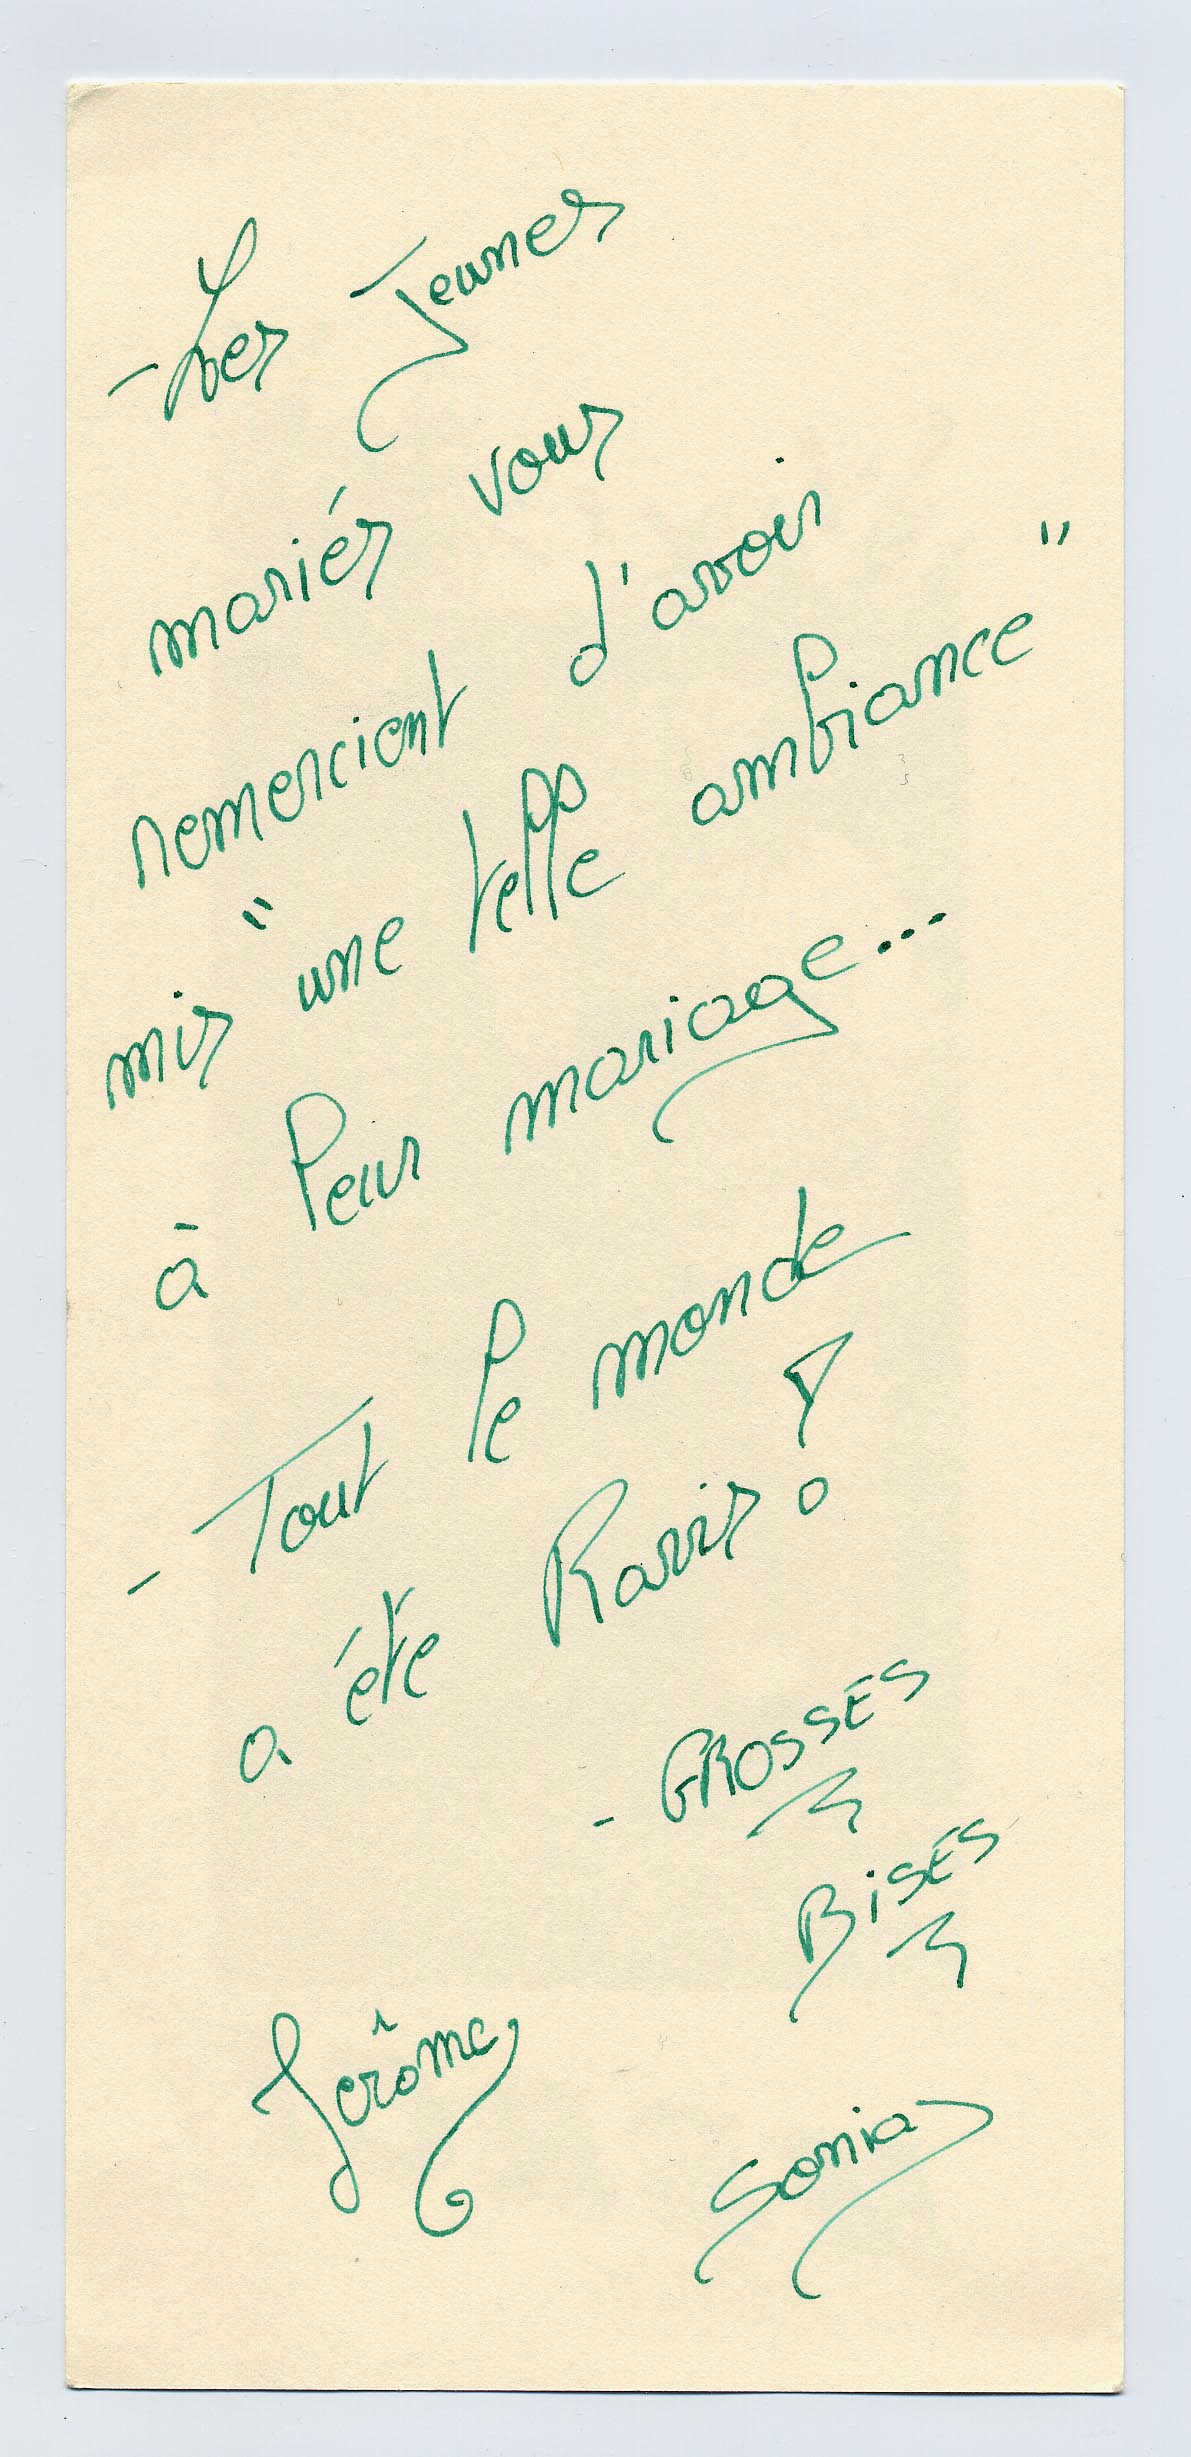 - Les Jeunes
mariés vous
remercient d'avoir
mis "une telle ambiance"
à leur mariage...
- Tout le monde
a été Ravis !
- GROSSES
BiSES
Jérôme
Sonia